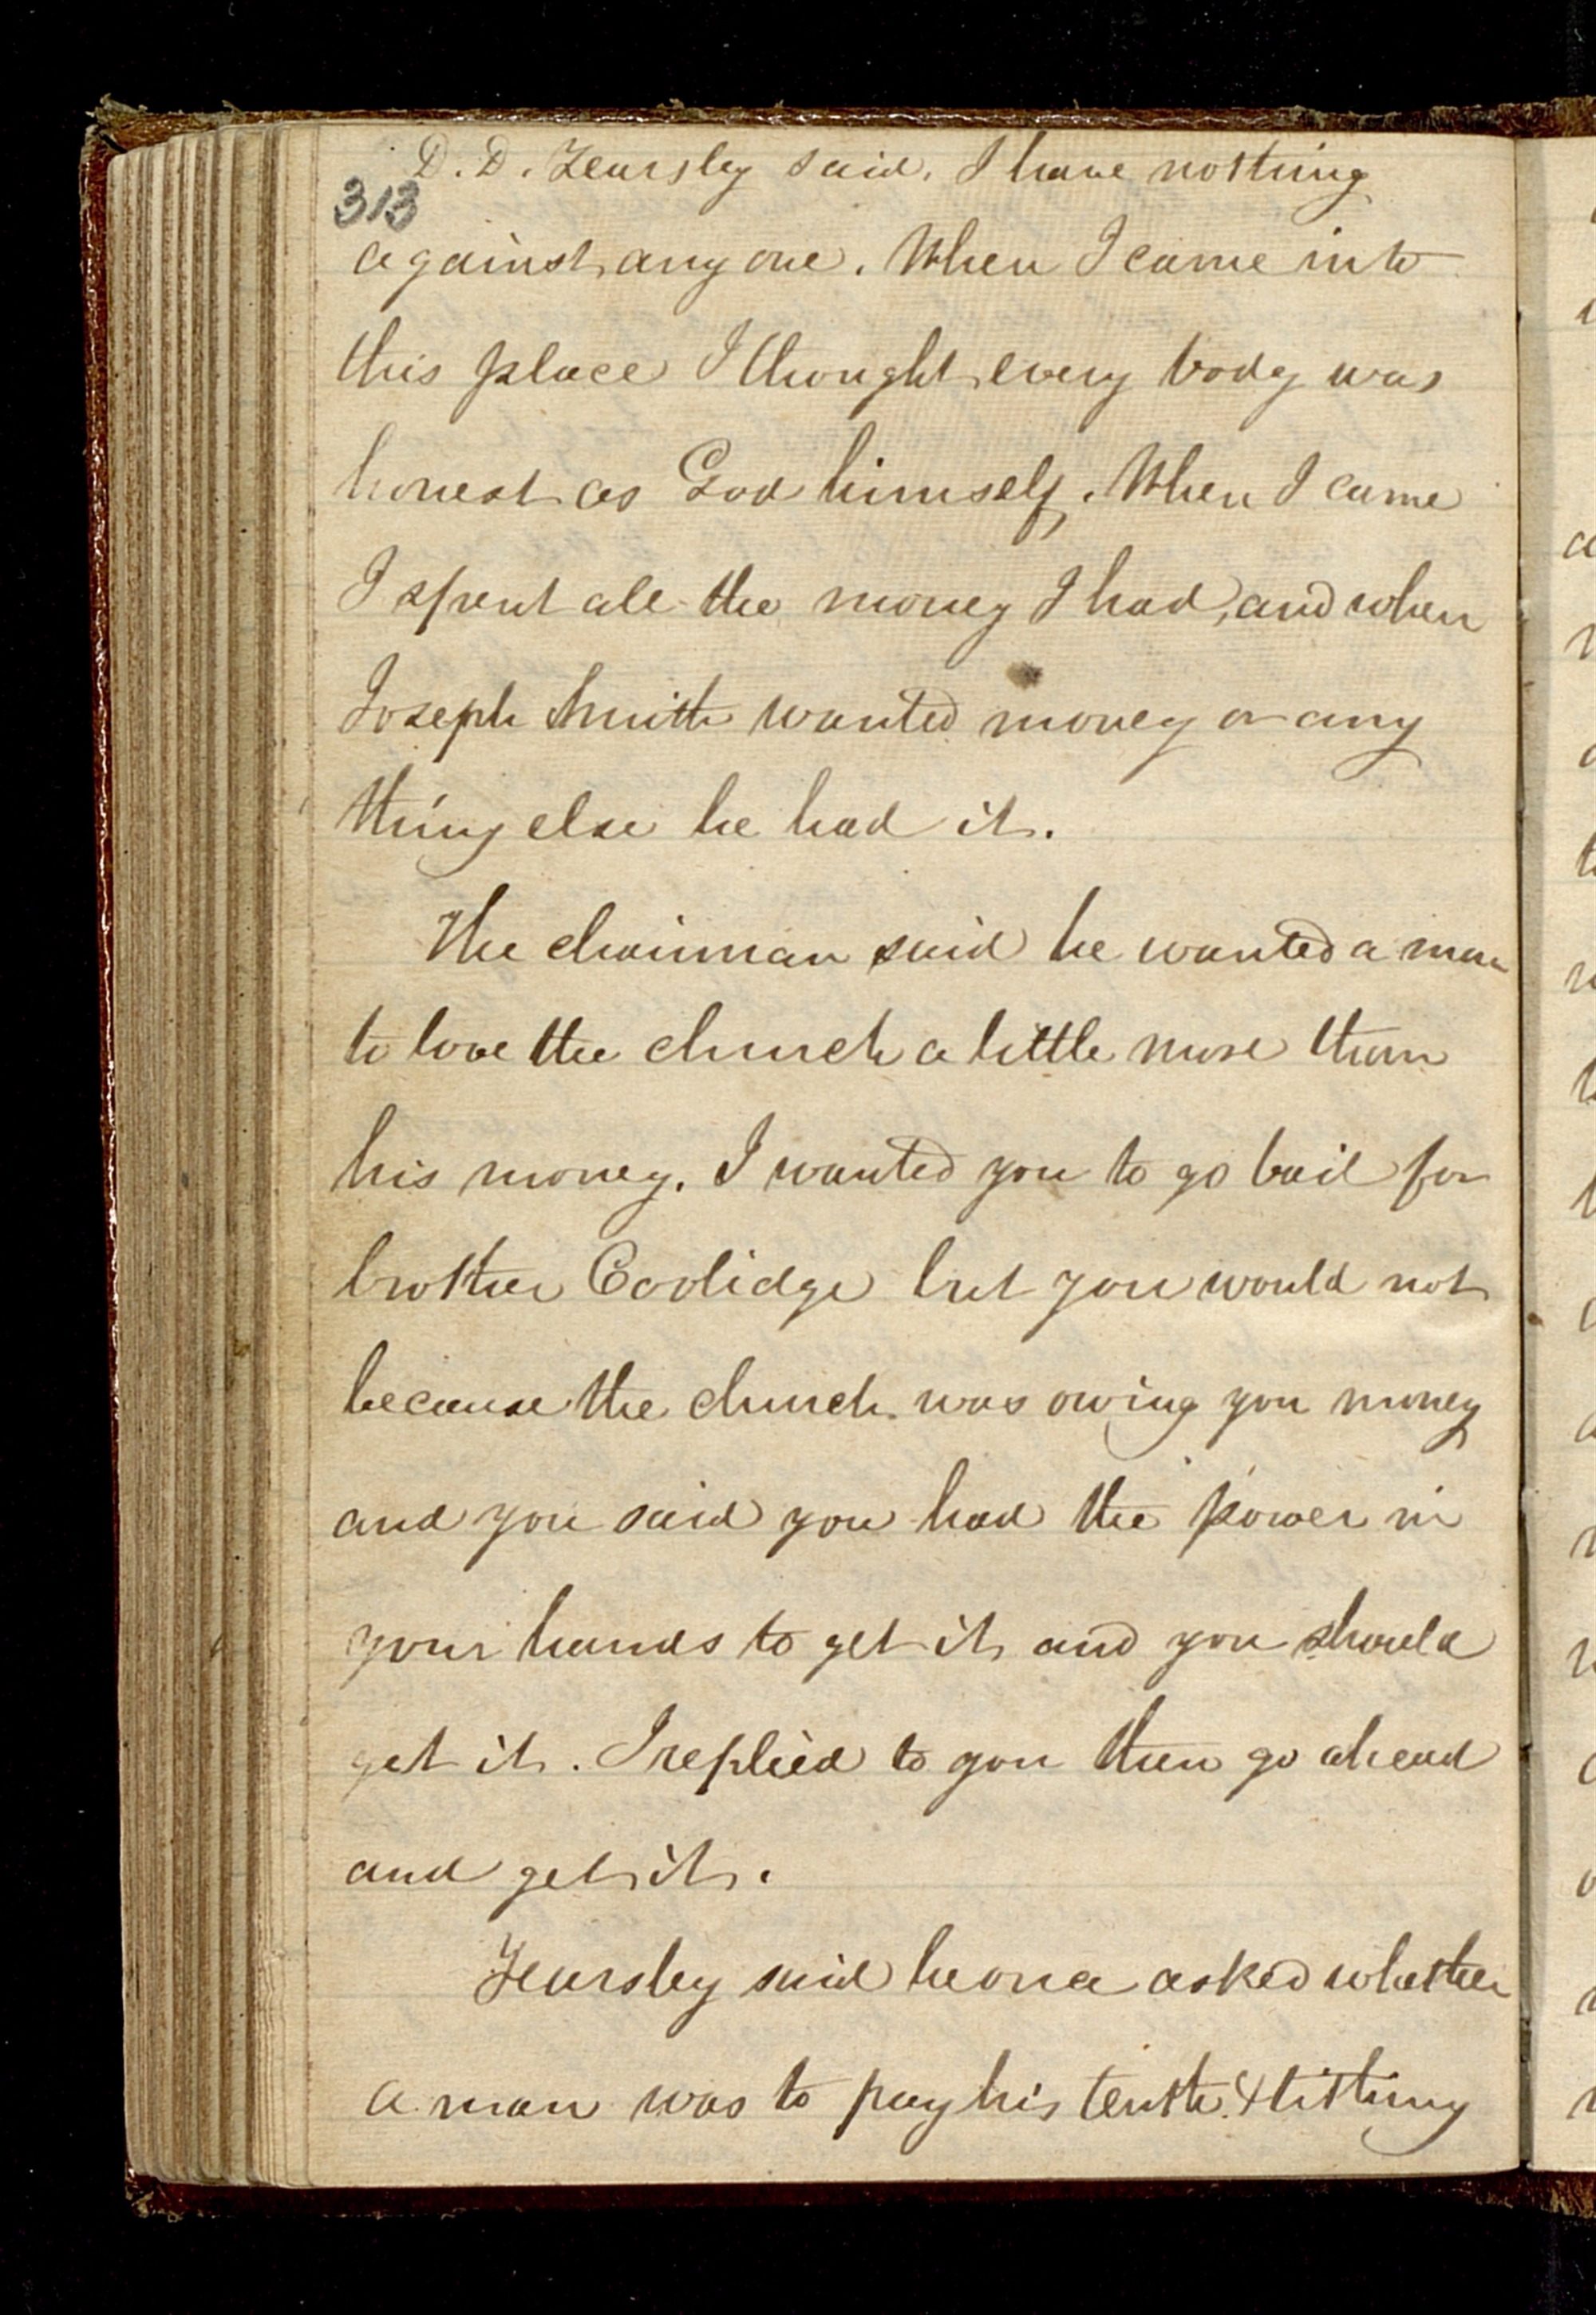 D. D. Yearsley said, I have nothing
313
against any one. When I came into
this place I thought every body was
honest as God himself. When I came
I spent all the money I had, and when
Joseph Smith wanted money or any
thing else he had it.
The chairman said he wanted a man
to love the church a little more than
his money. I wanted you to go bail for
brother Coolidge but you would not
because the church was owing you money
and you said you had the power in
your hands to get it and you should
get it. I replied to you then go ahead
and get it.
Yearsley said he once asked whether
a man was to pay his tenth & tithing